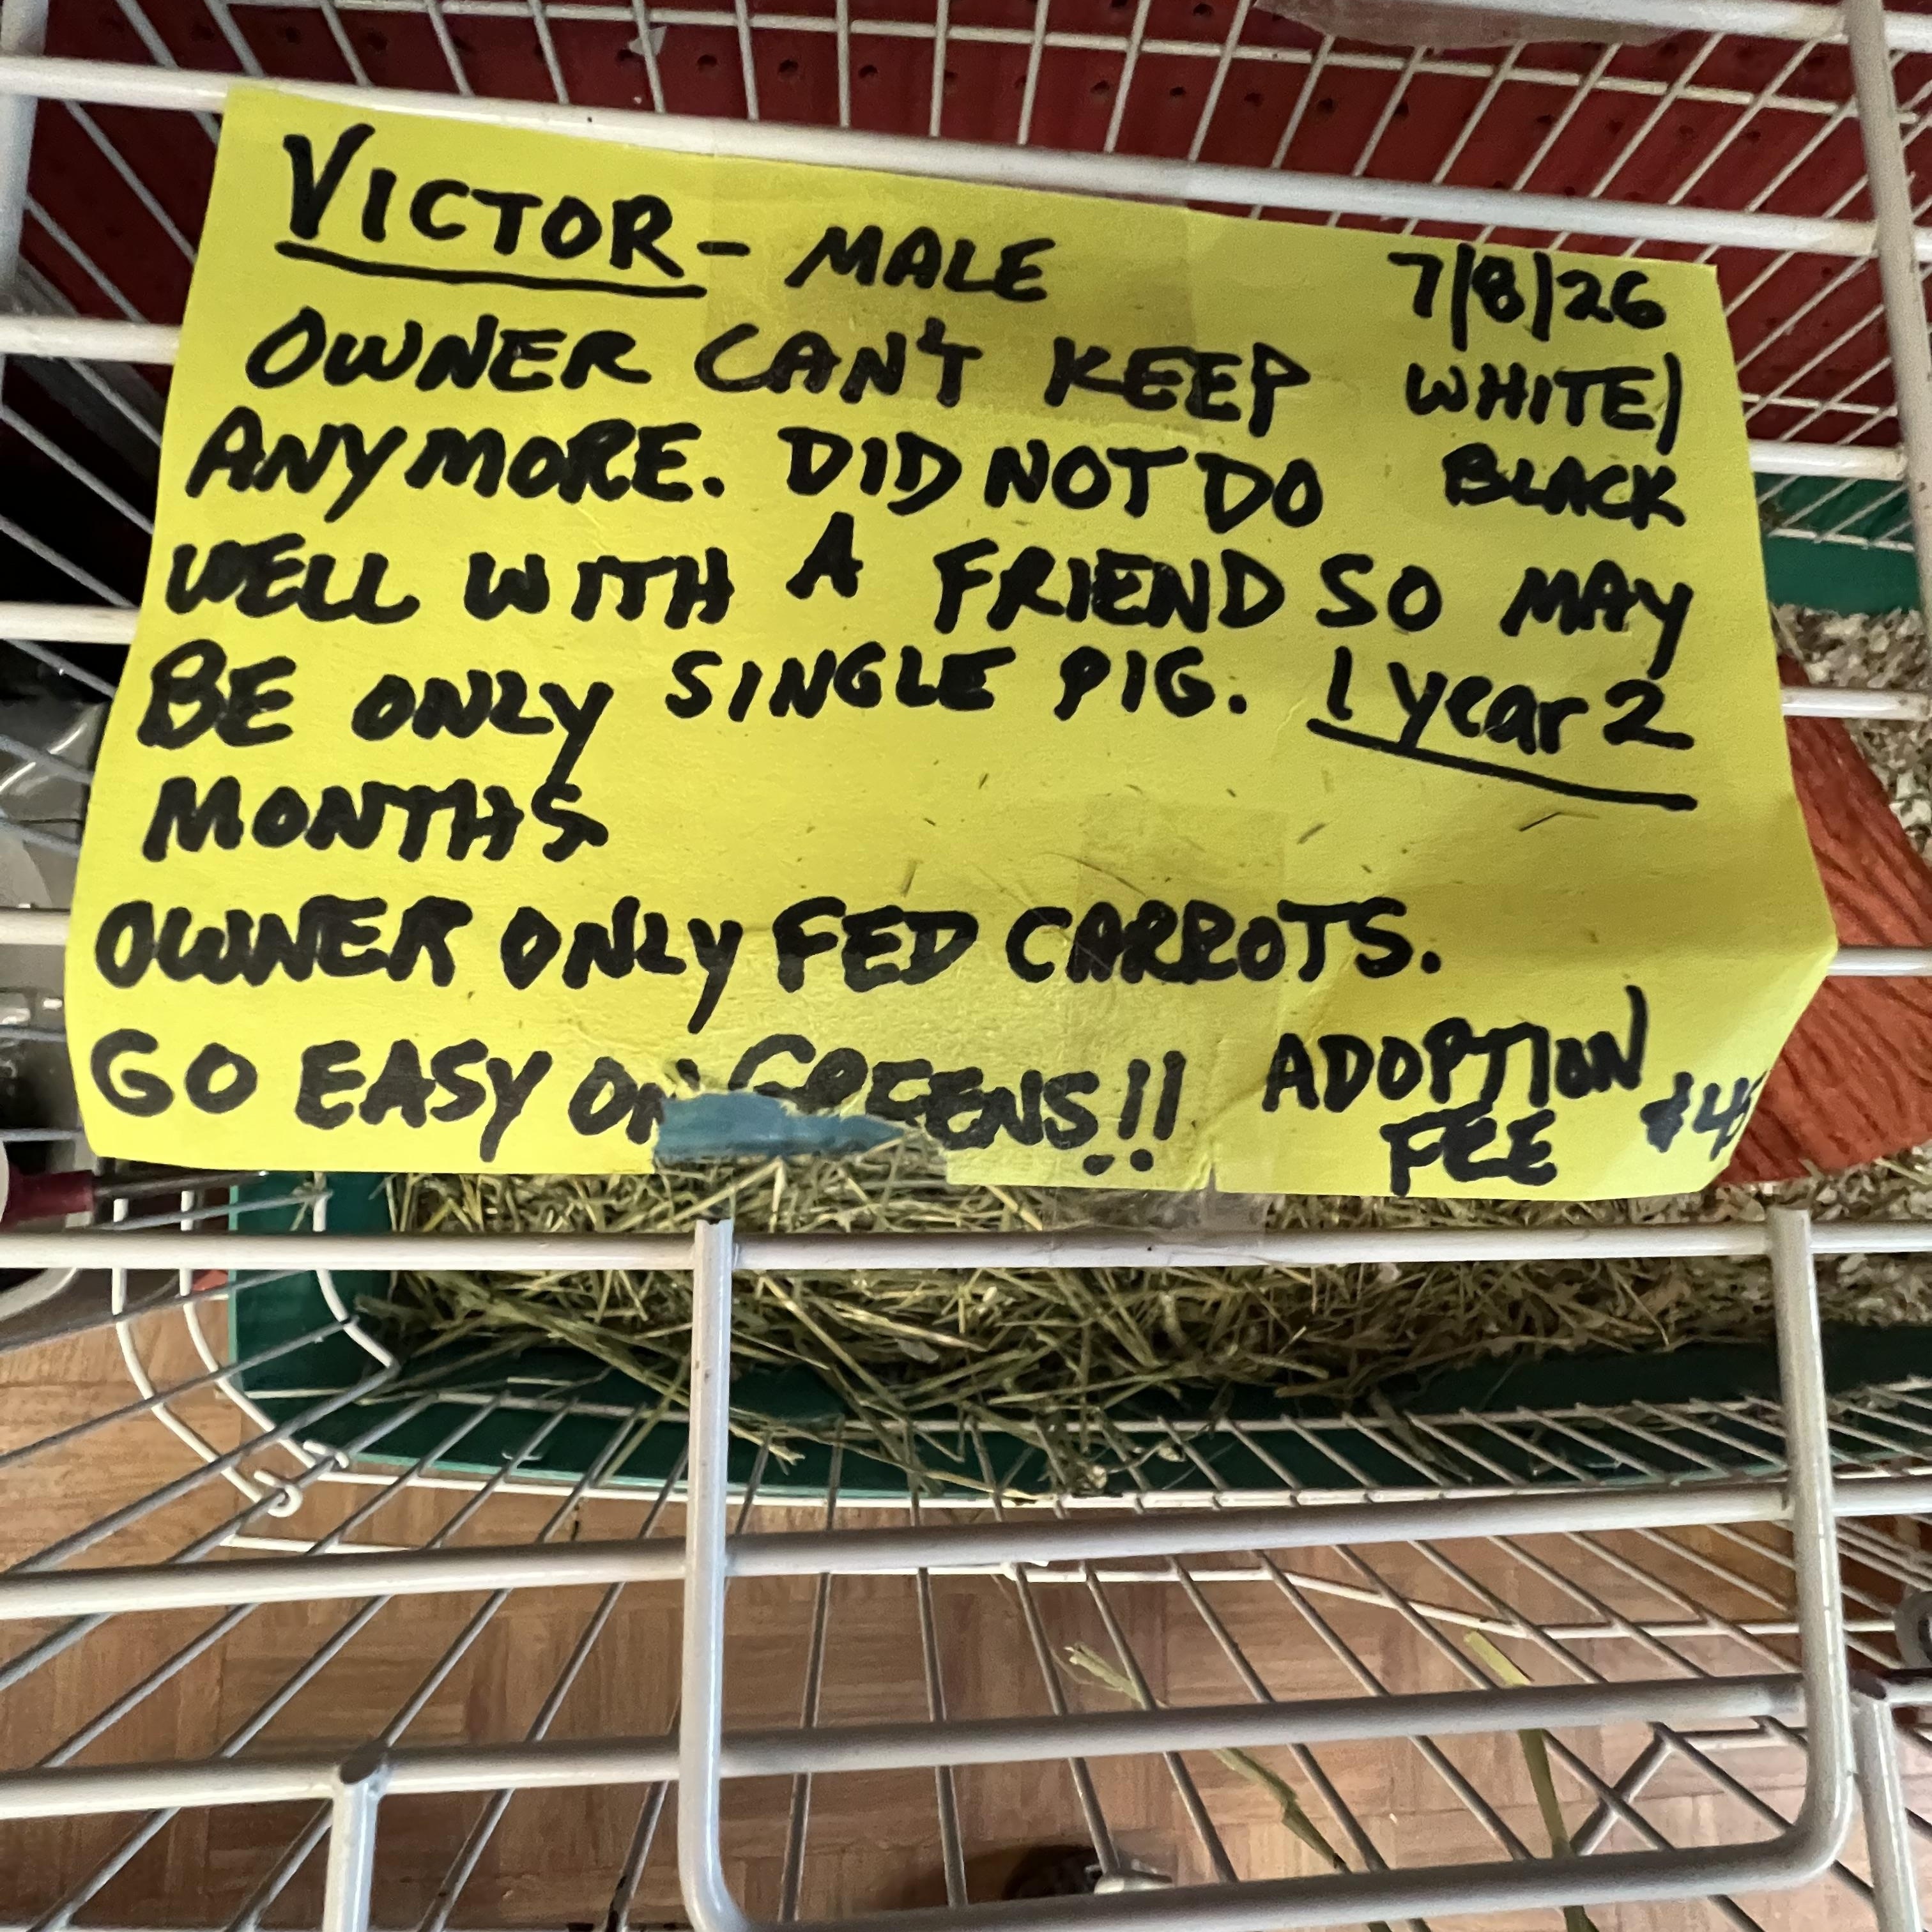 VICTOR - MALE 7/8/26
OWNER CAN'T KEEP WHITE/
ANYMORE. DID NOT DO BLACK
WELL WITH A FRIEND SO MAY
BE ONLY SINGLE PIG. 1 year 2
MONTHS
OWNER ONLY FED CARROTS.
GO EASY ON GREENS!! ADOPTION
FEE